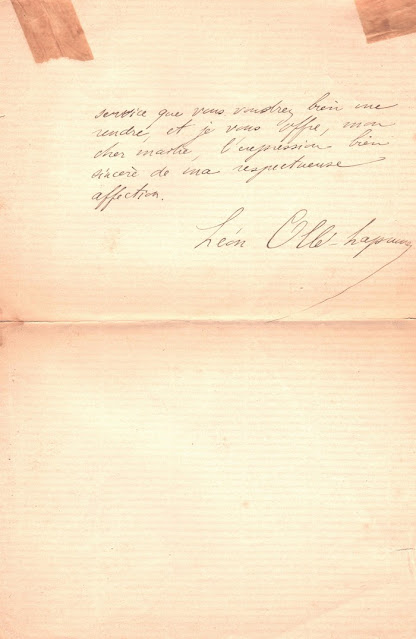 service que vous voudrez bien me
rendre, et je vous offre, mon
cher maître, l'expression bien
sincère de ma respectueuse
affection.
Léon Ollé-Laprune